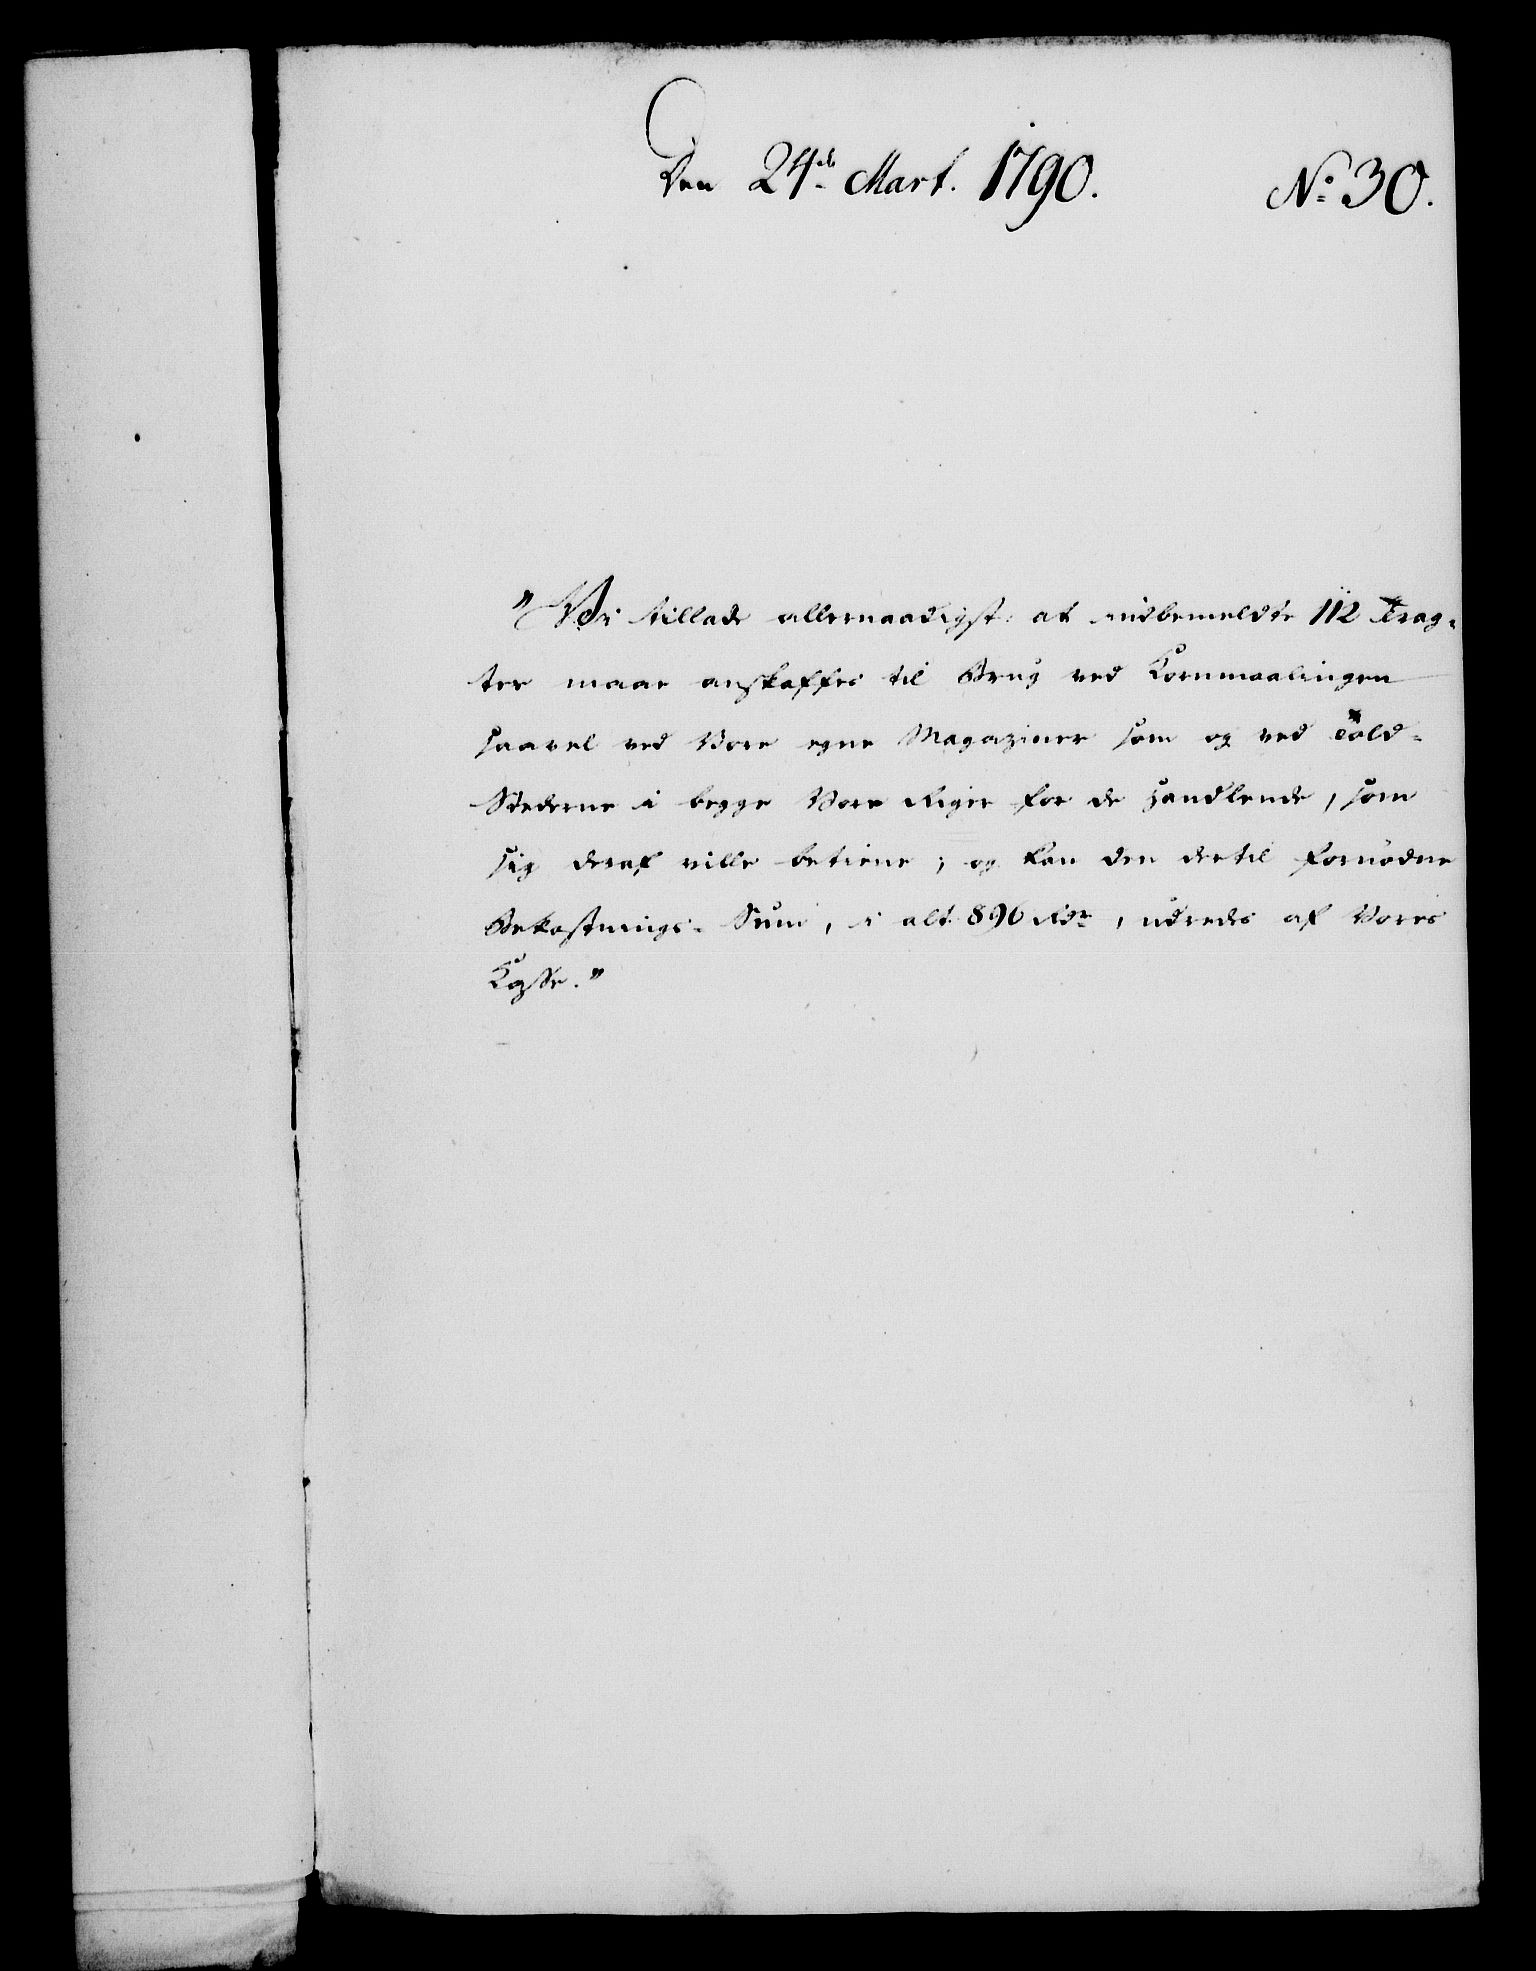 Den 24de Mart. 1790. No 30.
"Vi tillade allernaadigst: at indbemeldte 112 Trag-
ter maae anskaffes til Brug ved Kornmaalingen
saavel ved Vore egne Magaziner som og ved Told-
Stederne i begge Vore Riger for de Handlende, som
sig deraf ville betiene; og kan den dertil fornødne
Bekostnings-Sum, i alt 896 Rdr, udredes af Vores
Kasse."